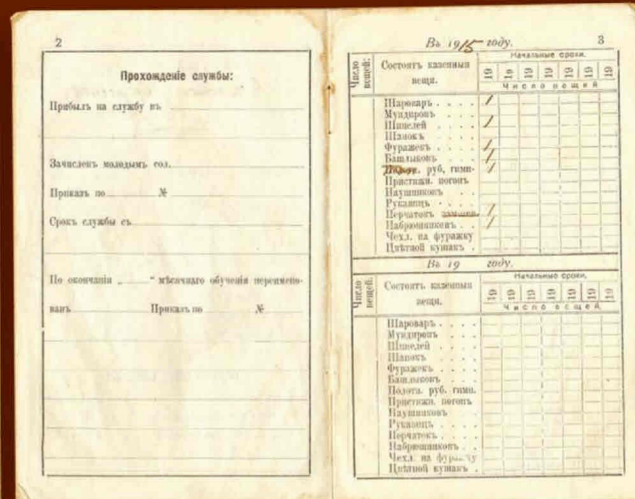 2
Прохожденіе службы:
Прибылъ на службу въ
Зачисленъ молодымъ сол.
Приказъ по №
Срокъ службы съ
По окончаніи „ “ мѣсячнаго обученія переимено-
ванъ Приказъ по №
Въ 1915 году. 3
Число вещей: Состоятъ казенныя вещи. Начальные сроки.
19 19 19 19 19 19 19
Число вещей
Шароваръ . . . . 1
Мундировъ . . . .
Шинелей . . . . 1
Шапокъ . . . .
Фуражекъ . . . . 1
Башлыковъ . . . . 1
руб. гимн. 1
Пристяжн. погонъ
Наушниковъ . . .
Рукавицъ . . . .
Перчатокъ 1
Набрюшниковъ . . 1
Чехл. на фуражку
Цвѣтной кушакъ .
Въ 19 году.
Число вещей: Состоятъ казенныя вещи. Начальные сроки.
19 19 19 19 19 19 19
Число вещей.
Шароваръ . . . .
Мундировъ . . . .
Шинелей . . . .
Шапокъ . . . .
Фуражекъ . . . .
Башлыковъ . . . .
Полотн. руб. гимн.
Пристяжн. погонъ
Наушниковъ . . .
Рукавицъ . . . .
Перчатокъ . . . .
Набрюшниковъ . .
Чехл. на фуражку
Цвѣтной кушакъ .